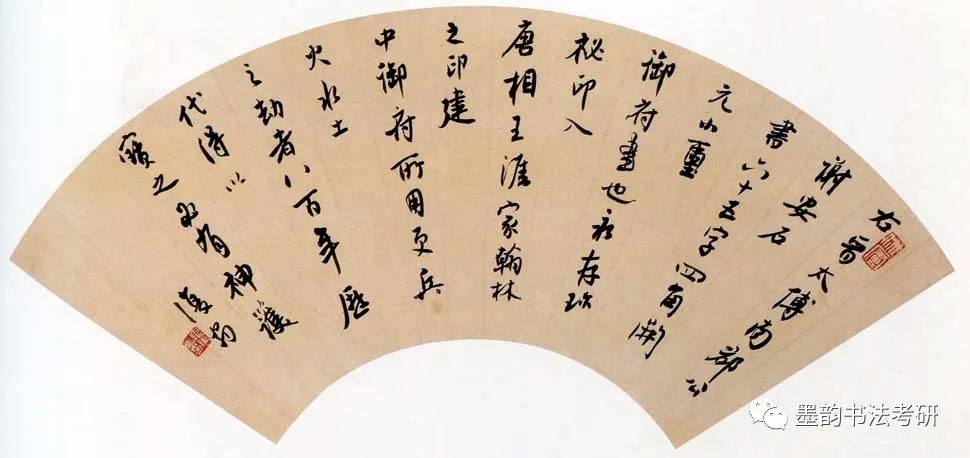 右晉太傅南郡公
謝安石
書六十五字四角開
元小璽
御府書也永存珍
祕印入
唐相王涯家翰林
之印建
中御府所用更兵
火水土
之劫者八百年歷
代得以
寶之必有神護
墨韵书法考研